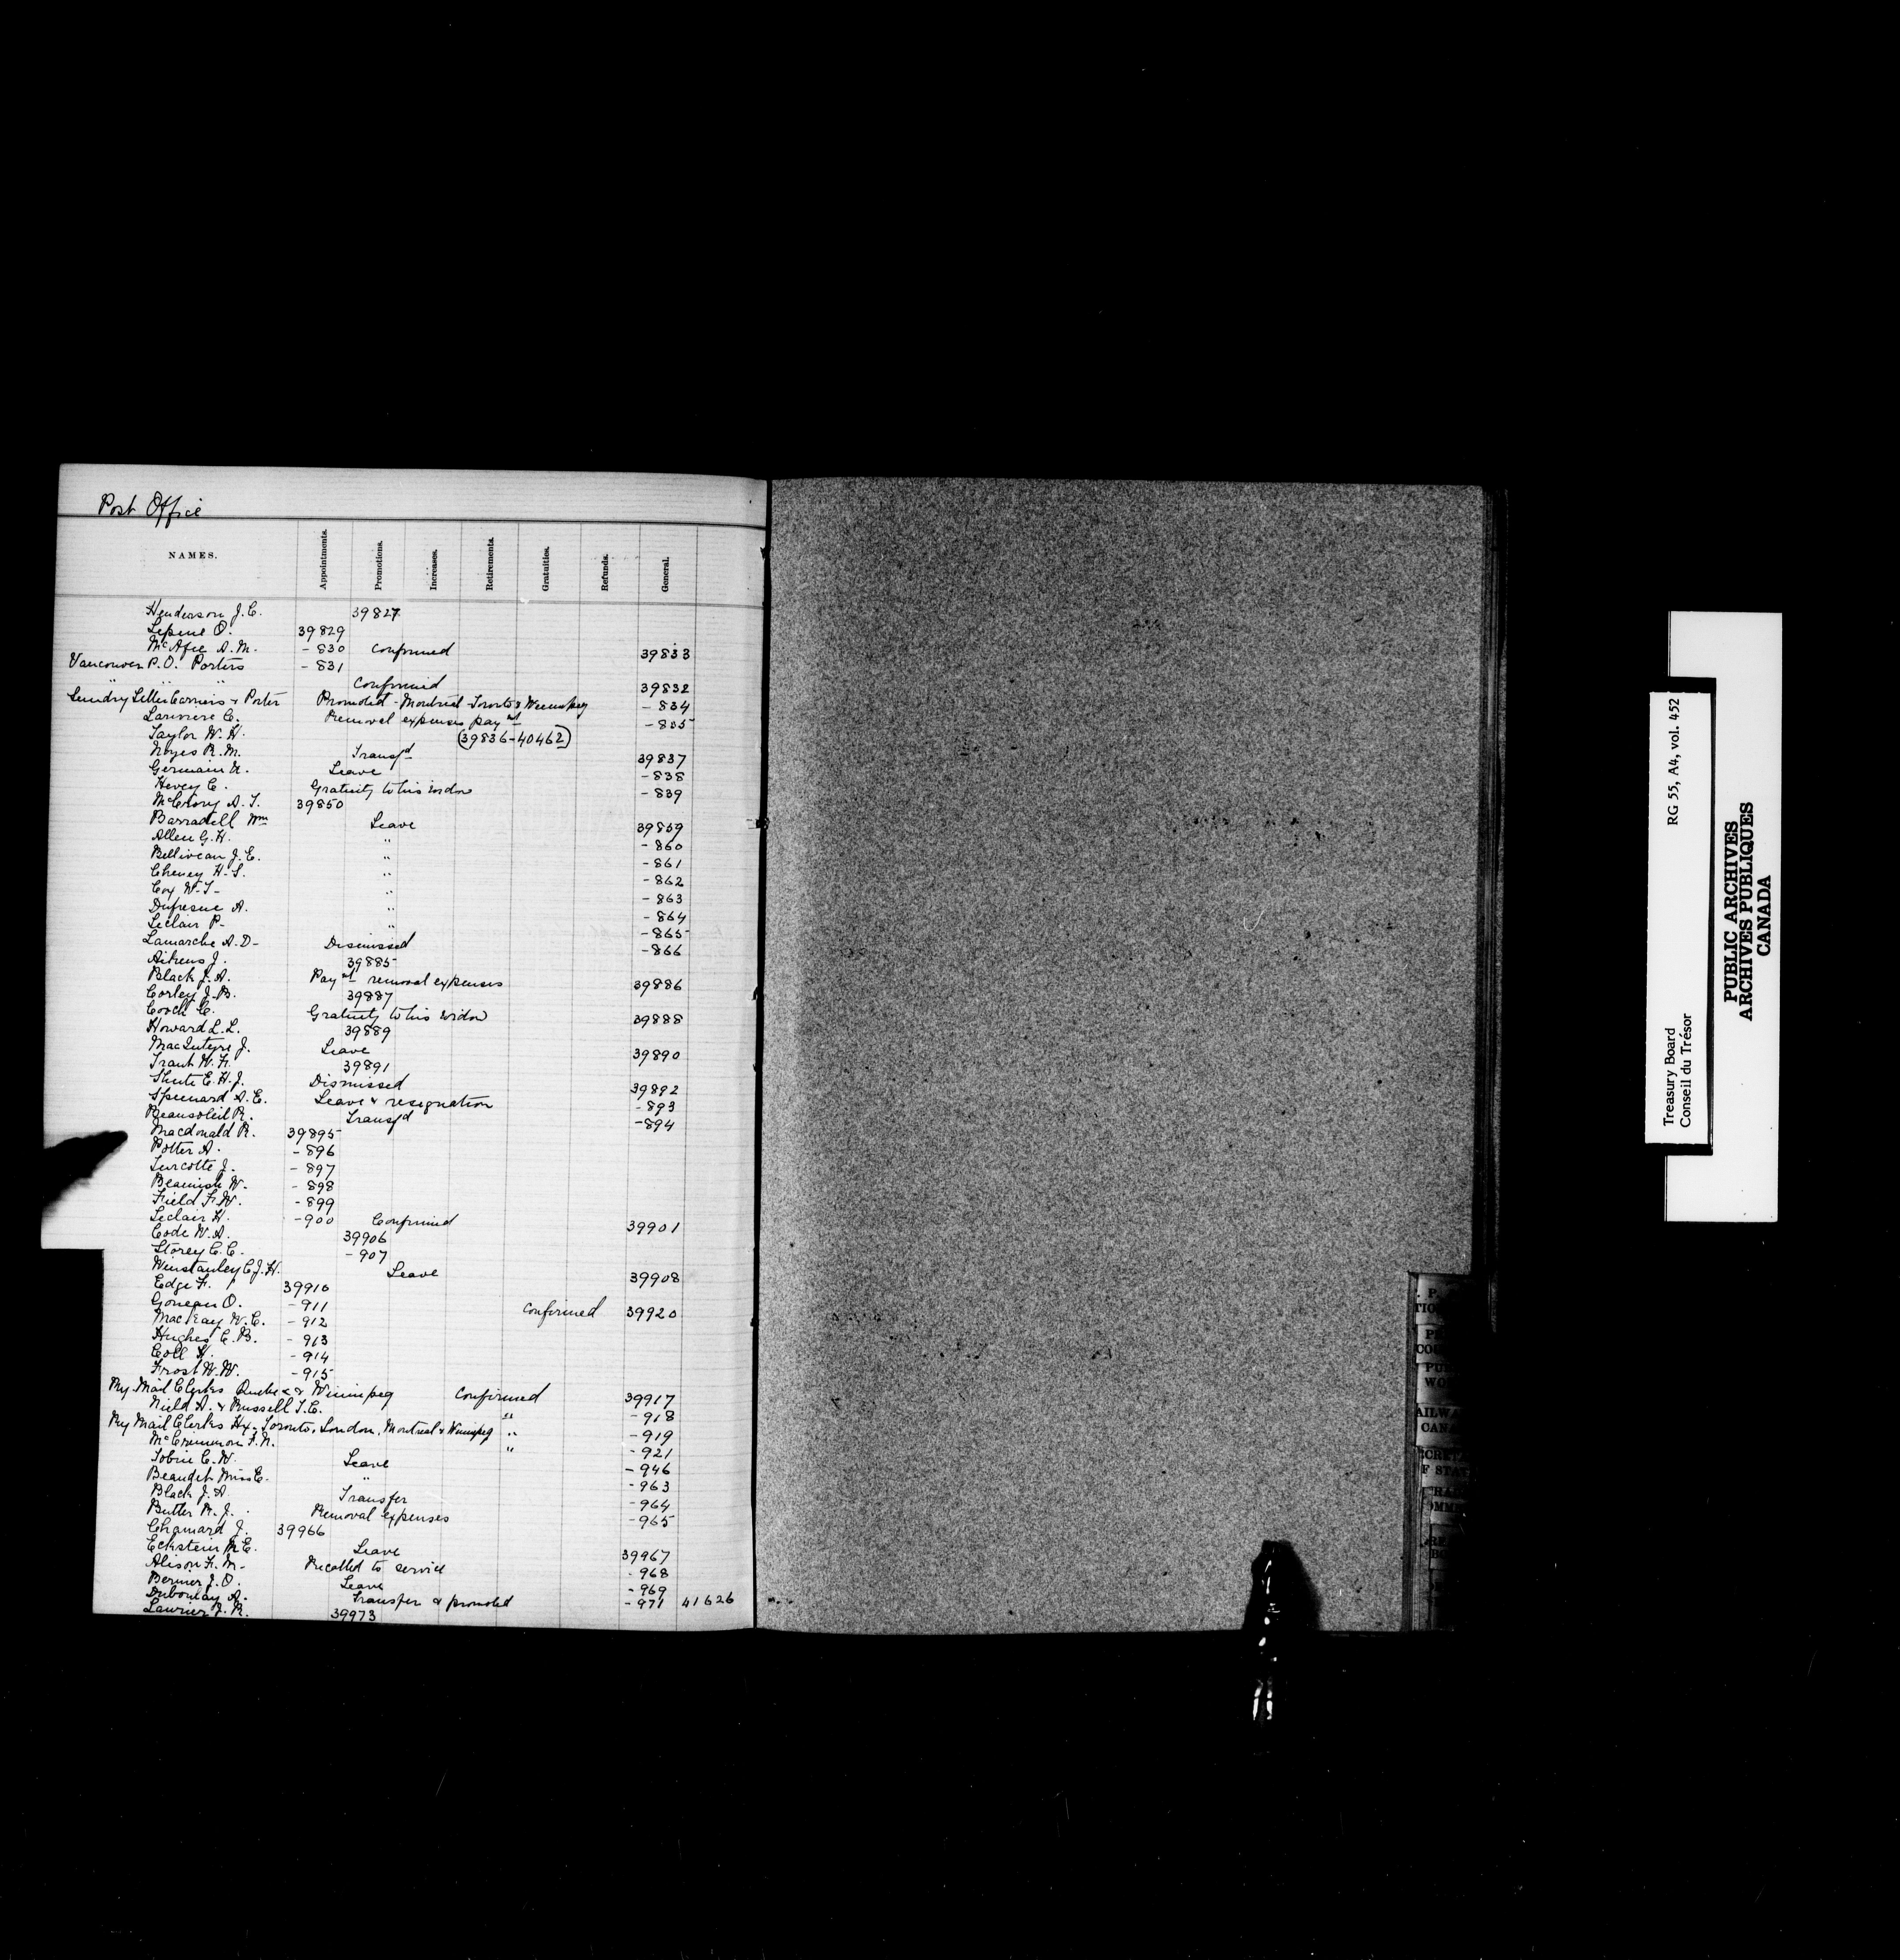 Post Office
NAMES. Appointments. Promotions. Increases. Retirements. Gratuities. Refunds. General.
Henderson J. C. 39827
Lepine O. 39829
McAfee A. M. - 830 Confirmed 39833
Vancouver P.O. Porters - 831
" " " Confirmed 39832
Sundry Letter Carriers & Porter Promoted - Montreal - Toronto & Winnipeg - 834
Lariviere C. Removal expenses paymt - 835
Taylor W. H. (39836-40462)
Noyes R. M. Transfd 39837
Germain A. Leave - 838
Hevey C. Gratuity to his widow - 839
McCrory A. T. 39850
Barradell Wm Leave 39859
Allen G. H. " - 860
Belliveau J. E. " - 861
Cheney H. S. " - 862
Cox W. T. " - 863
Dufresne A. " - 864
Leclair P. " - 865
Lamarche A. D. Dismissed - 866
Aitkens J. 39885
Black J. A. Paymt removal expenses 39886
Corley J. B. 39887
Cooch C. Gratuity to his widow 39888
Howard L. L. 39889
MacIntyre J. Leave 39890
Trant W. F. 39891
Shute E. H. J. Dismissed 39892
Spennard A. E. Leave & resignation - 893
Beausoleil R. Transfd - 894
Macdonald R. 39895
Potter A. - 896
Turcotte J. - 897
Beamish W. - 898
Field F. W. - 899
Leclair H. - 900 Confirmed 39901
Code W. A. 39906
Storey C. C. - 907
Winstanley C. J. H. Leave 39908
Edge F. 39910
Goneau O. - 911 Confirmed 39920
MacKay W. C. - 912
Hughes C. B. - 913
Coll H. - 914
Frost W. W. - 915
Ry Mail Clerks Quebec & Winnipeg Confirmed 39917
Nield A. & Russell T. C. " - 918
Ry Mail Clerks Hx. Toronto, London, Montreal & Winnipeg " - 919
McCrimmon F. N. " - 921
Tobin C. W. Leave - 946
Beaudet Miss E. " - 963
Black J. A. Transfer - 964
Butler R. J. Removal expenses - 965
Chamard J. 39966
Eckstein M. E. Leave 39967
Alison F. M. Recalled to service 968
Bernier J. O. Leave - 969
Duboulay A. Transfer & promoted - 971 41626
Laurier J. R. 39973
Treasury Board RG 55, A4, vol. 452
Conseil du Trésor
PUBLIC ARCHIVES
ARCHIVES PUBLIQUES
CANADA